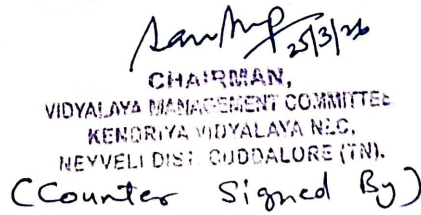 25/3/26
CHAIRMAN,
VIDYALAYA MANAGEMENT COMMITTEE
KENDRIYA VIDYALAYA NLC,
NEYVELI DIST. CUDDALORE (TN).
(Counter Signed By)